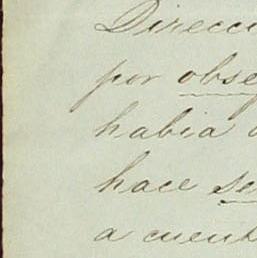 Direcci
por obse
habia
hace se
a cuent